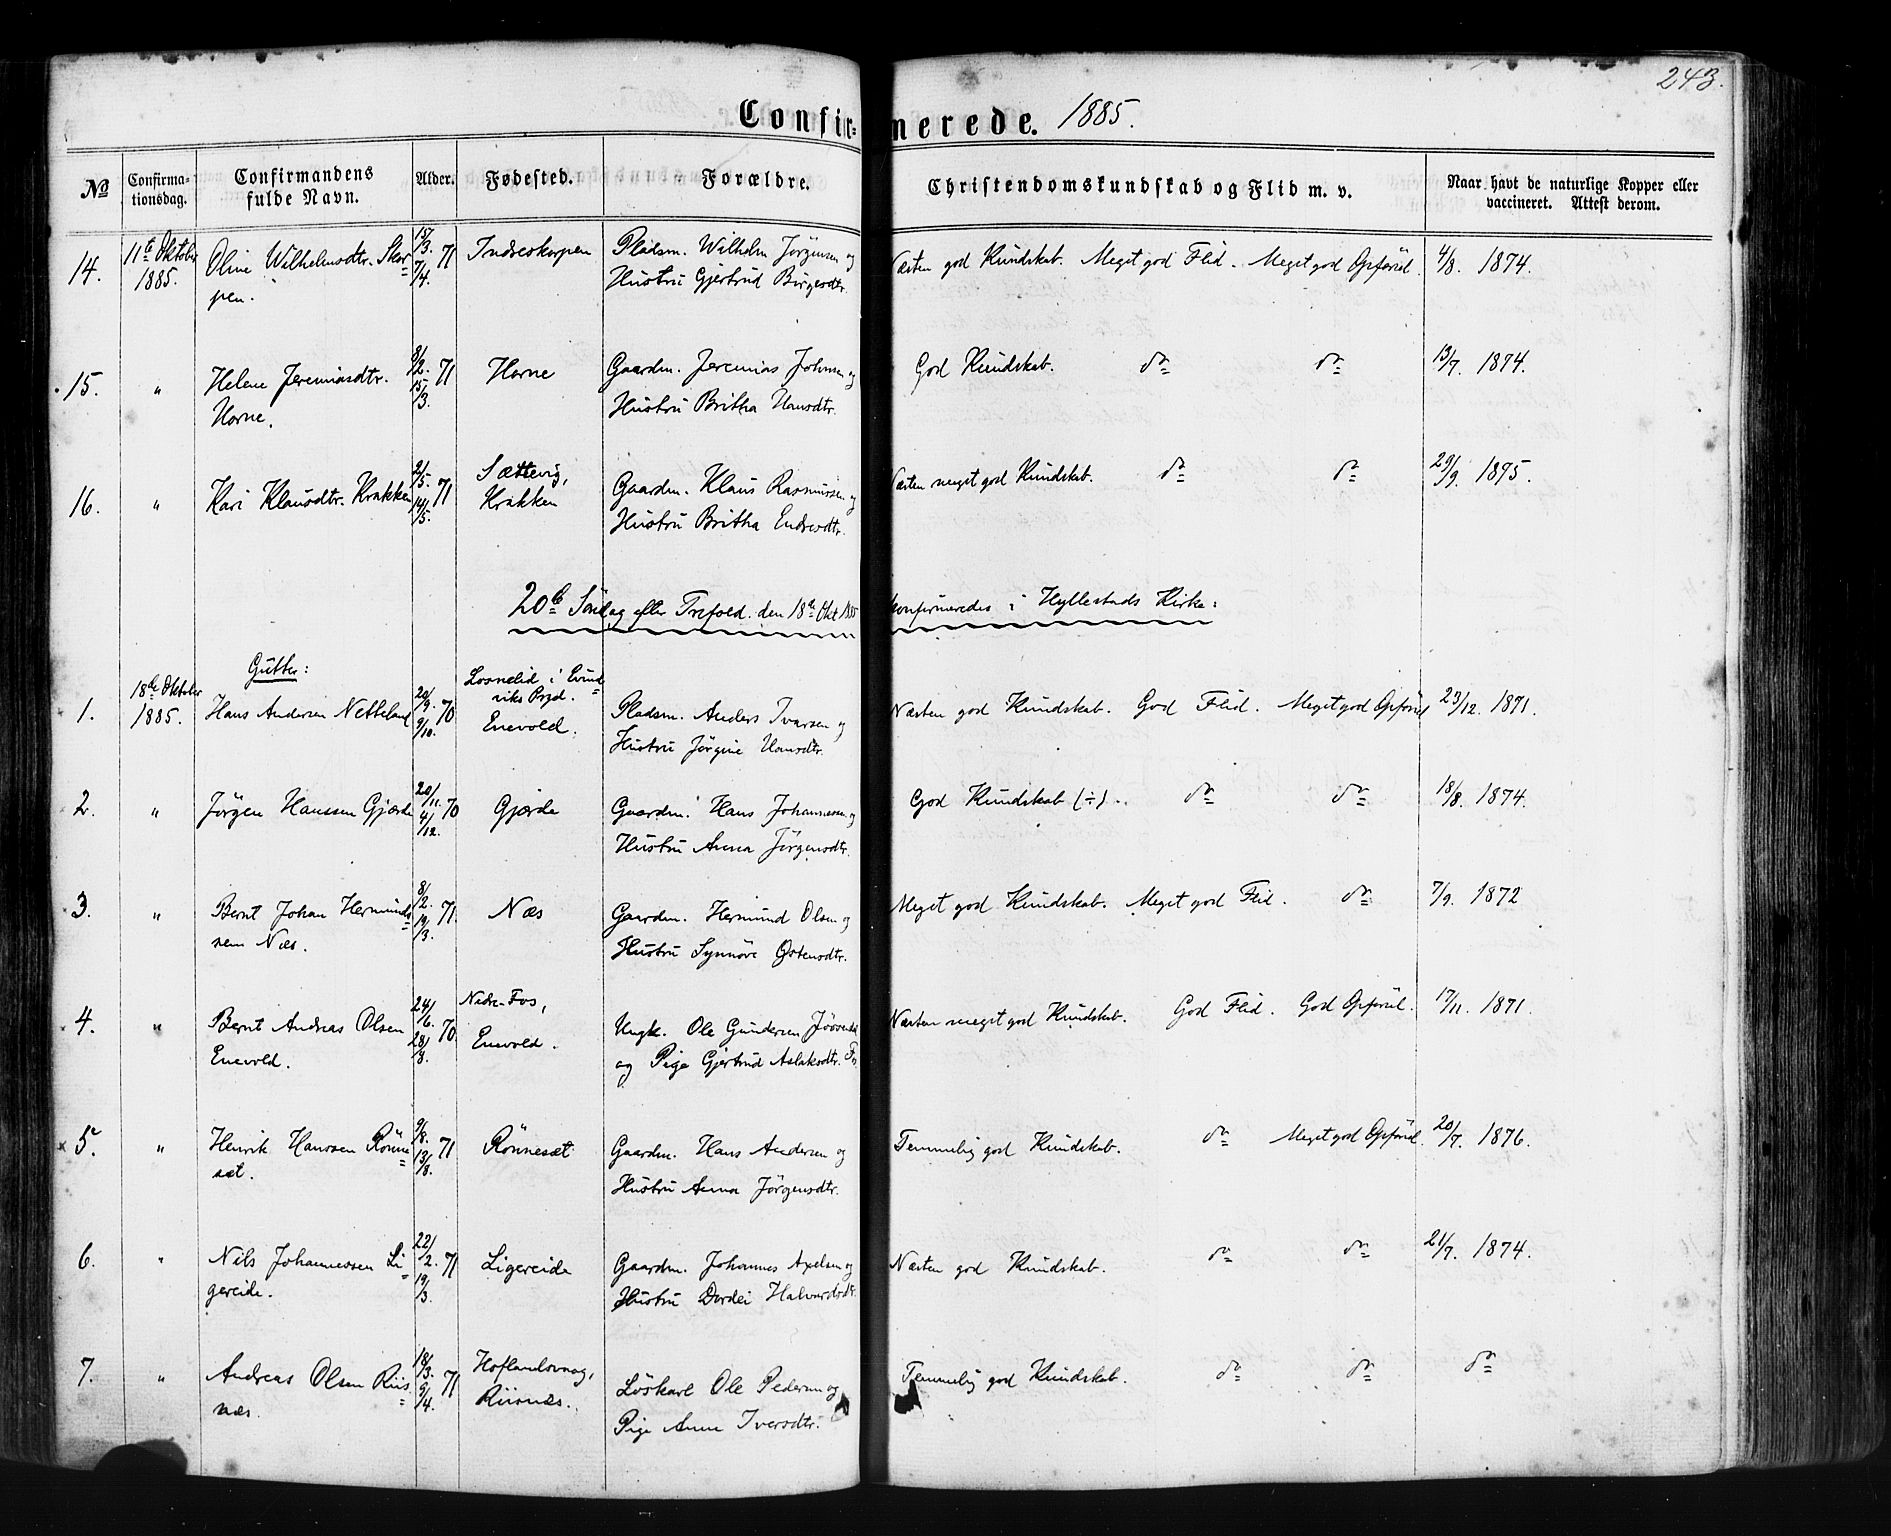 243.
Confir- merede. 1885.
No
Confirma-
tionsdag.
Confirmandens
fulde Navn.
Alder.
Fødested.
Forældre.
Christendomskundskab og Flid m. v.
Naar havt de naturlige Kopper eller
vaccineret. Attest derom.
14. 11te Oktober Oline Wilhelmsdtr. Skor= 15/3. 71 Indreskorpen Pladsm. Wilhelm Jørgensen og Næsten god Kundskab. Meget god Flid. Meget god Opførsel. 4/8. 1874.
1885. pen. 7/4. Hustru Gjertrud Birgesdtr.
15. " Helene Jeremiasdtr. 8/2. 71 Horne Gaardm. Jeremias Johnsen og God Kundskab. do do 13/7. 1874.
Horne. 15/3. Hustru Britha Hansdtr.
16. " Kari Klausdtr. Krakken 2/5. 71 Sættevig, Gaardm. Klaus Rasmussen og Næsten meget god Kundskab. do do 29/9. 1875.
14/5. Krakken Hustru Britha Endresdtr.
20de Søndag efter Trefold. den 18de Okt 1885 konfirmeredes i Hyllestads Kirke:
Gutter:
1. 18de Oktober Hans Andersen Netteland 20/9. 70 Losnelid i Evind= Pladsm. Anders Ivarsen og Næsten god Kundskab. God Flid. Meget god Opførsel 23/12. 1871.
1885. 9/10. viks Prgd. Enevold. Hustru Jørgine Hansdtr.
2. " Jørgen Hanssen Gjærde 20/11. 70 Gjærde Gaardm. Hans Johannessen og God Kundskab (÷). do do 18/8. 1874.
4/12. Hustru Anna Jørgensdtr.
3. " Bernt Johan Hermunds= 8/2. 71. Næs Gaardm. Hermund Olsen og Meget god Kundskab. Meget god Flid. do 7/9. 1872
sen Næs. 19/3. Hustru Synnøve Østensdtr.
4. " Bernt Andreas Olsen 24/6. 70. Nedre-Fos, Ungk. Ole Gundersen Næsten meget god Kundskab. God Flid. God Opførsel. 17/11. 1871.
Enevold. 28/8. Enevold. og Pige Gjertrud Aslaksdtr.
5. " Henrik Hanssen Rønne= 9/8. 71 Rønneset Gaardm. Hans Andersen og Temmelig god Kundskab. do Meget god Opførsel. 20/7. 1876.
set. 13/8. Hustru Anna Jørgensdtr.
6. " Nils Johannessen Li= 22/2. 71 Ligereide Gaardm. Johannes Axelsen og Næsten god Kundskab. do do 21/7. 1874.
gereide. 19/3. Hustru Dordei Halvardsdtr.
7. " Andreas Olsen Riis= 18/3. 71 Hoflandsvaag, Løskarl Ole Pedersen og Temmelig god Kundskab. do do do
næs. 9/4. Riisnæs. Pige Anne Iversdtr.